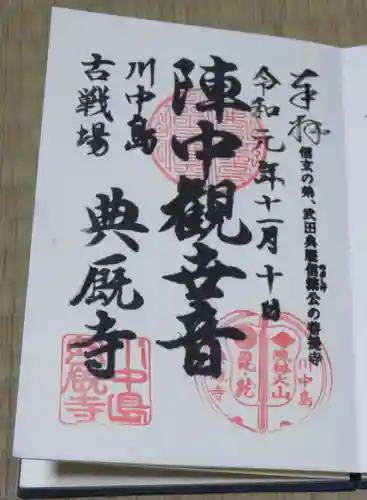 奉拝
信玄の弟、武田典厩信繁公の菩提寺
令和元年十一月十日
陣中観世音
川中島
古戦場
典厩寺
川中島
典厩寺
川中島
風林火山